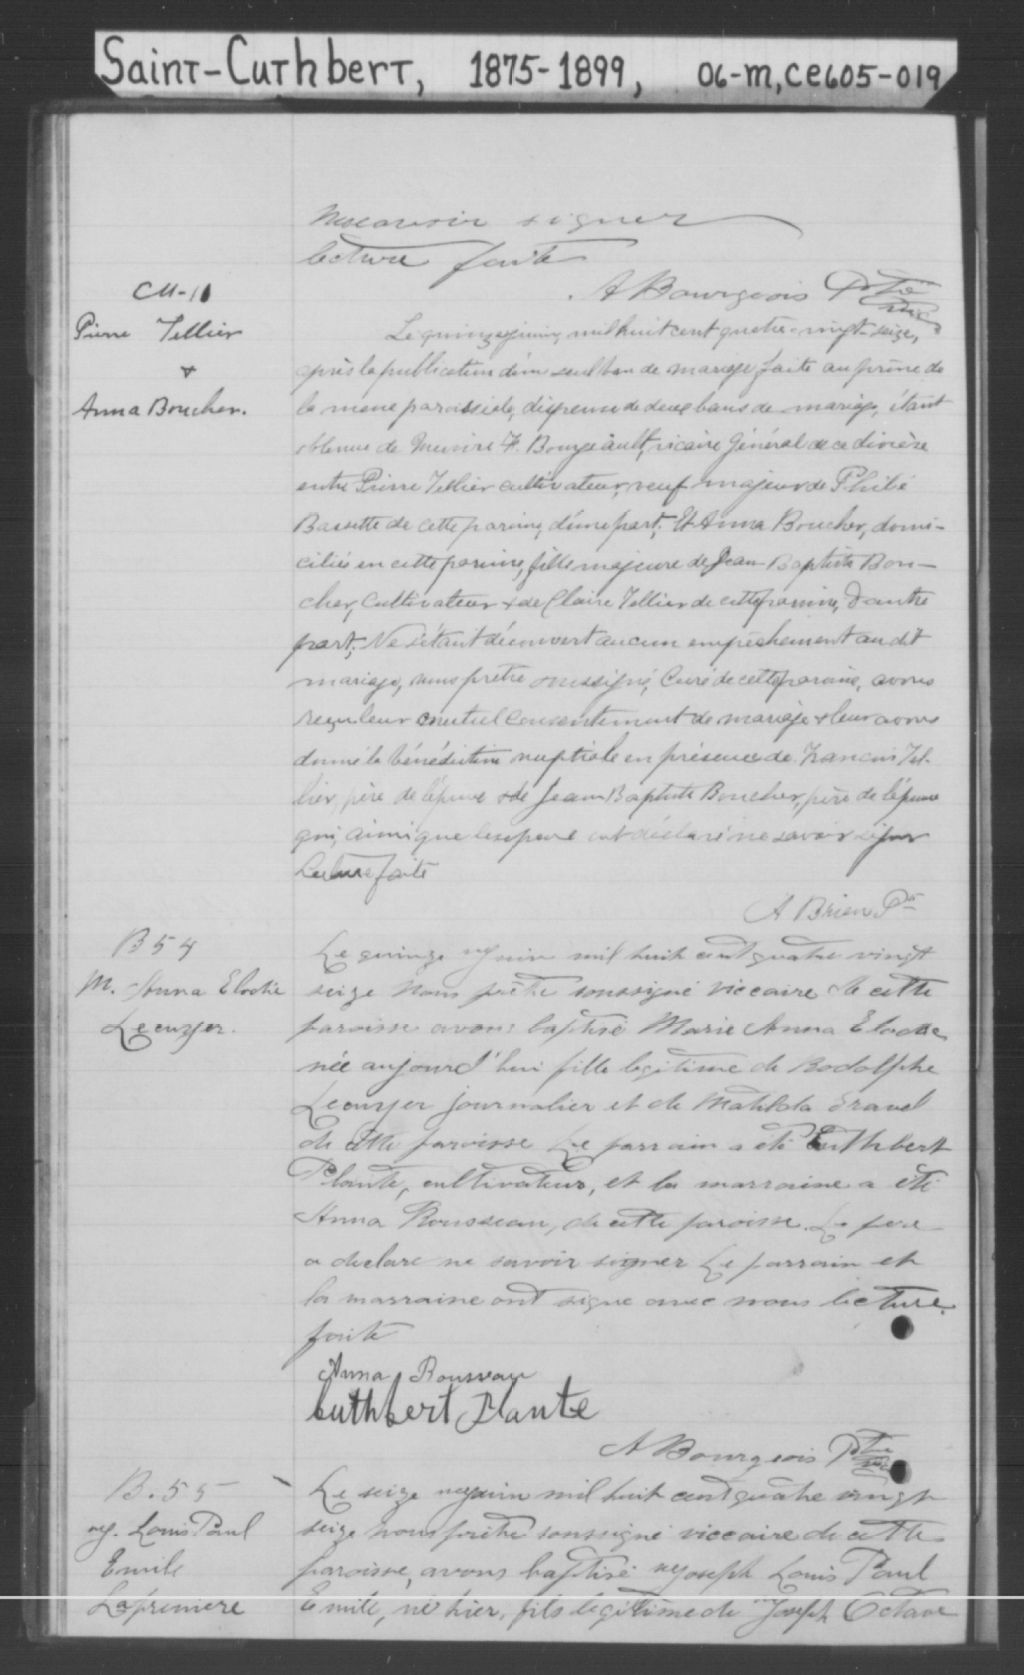 Saint-Cuthbert, 1875-1899, 06-M, CE605-019
signer
lecture faite
A Bourgeois Ptre
M-11
Pierre Tellier
+
Anna Boucher.
Le quinze juin, mil huit cent quatre-vingt-seize,
après la publication d'un seul ban de mariage faite au prône de
la messe paroissiale, dispense de deux bans de mariage, étant
obtenue de Messire F. Bourgeault, vicaire général de ce diocèse
entre Pierre Tellier cultivateur, veuf majeur de
Bassette de cette paroisse, d'une part; Et Anna Boucher, domi-
ciliée en cette paroisse, fille majeure de Jean-Baptiste Bou-
cher, Cultivateur & de Claire Tellier de cette paroisse, d'autre
part; Ne s'étant découvert aucun empêchement au dit
mariage, nous prêtre soussigné, Curé de cette paroisse, avons
reçu leur mutuel consentement de mariage & leur avons
donné la bénédiction nuptiale en présence de François Tel-
lier, père de l'époux & de Jean Baptiste Boucher, père de l'épouse
qui, ainsi que les époux ont déclaré ne savoir signer
Lecture faite
A Brien Ptr
B 54
M. Anna Elodie
Lecuyer.
Le quinze juin mil huit cent quatre vingt
seize Nous prêtre soussigné viccaire de cette
paroisse avons baptisé Marie Anna Elodie
née aujourd'hui fille legitime de Rodolphe
Lecuyer journalier et de Matilda Gravel
de cette paroisse Le parrain a été Cuthbert
Plante, cultivateur, et la marraine a été
Anna Rousseau, de cette paroisse. Le père
a declaré ne savoir signer Le parrain et
la marraine ont signé avec nous lecture
faite
Anna Rousseau
Cuthbert Plante
A Bourgeois Ptre
B. 55
Louis Paul
Emile
Laferriere
Le seize juin mil huit cent quatre vingt
seize nous prêtre soussigné viccaire de cette
paroisse, avons baptisé Joseph Louis Paul
Emile, né hier, fils legitime de Joseph Octave